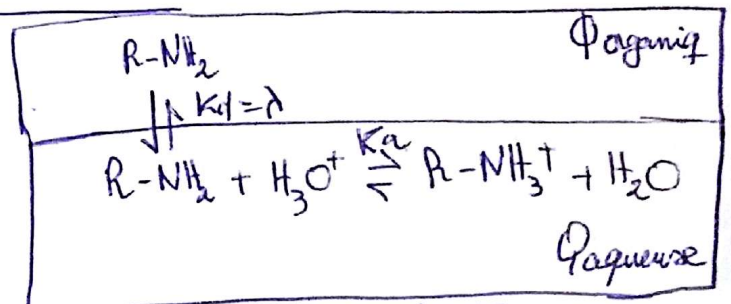 R-NH₂ Φorganiq
⇃↾ Kd=λ
R-NH₂ + H₃O⁺ ⇌ Ka R-NH₃⁺ + H₂O
Φaqueuse